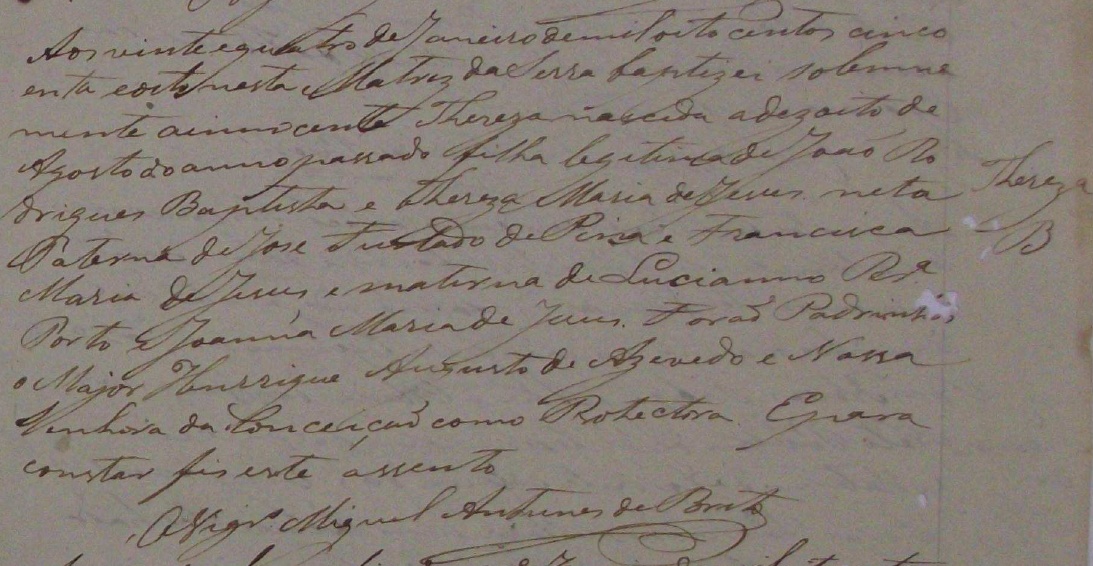 Aos vinte e quatro de Janeiro de mil oito centos cinco
enta e oito nesta Matriz da Serra baptizei solemne
mente a innocente Thereza nascida a dezoito de
Agosto do anno passado filha legitima de João Ro
drigues Baptista e Thereza Maria de Jesus neta
Paterna de José Furtado de Pina e Francisca
Maria de Jesus e materna de Lucianno Rª
Porto e Joanna Maria de Jesus. Forão Padrinhos
o Major Henrrique Augusto de Azevedo e Nossa
Senhora da Conceição como Protectora. E para
constar fis este assento
O Vigrº Miguel Antunes de Brito
Thereza
B